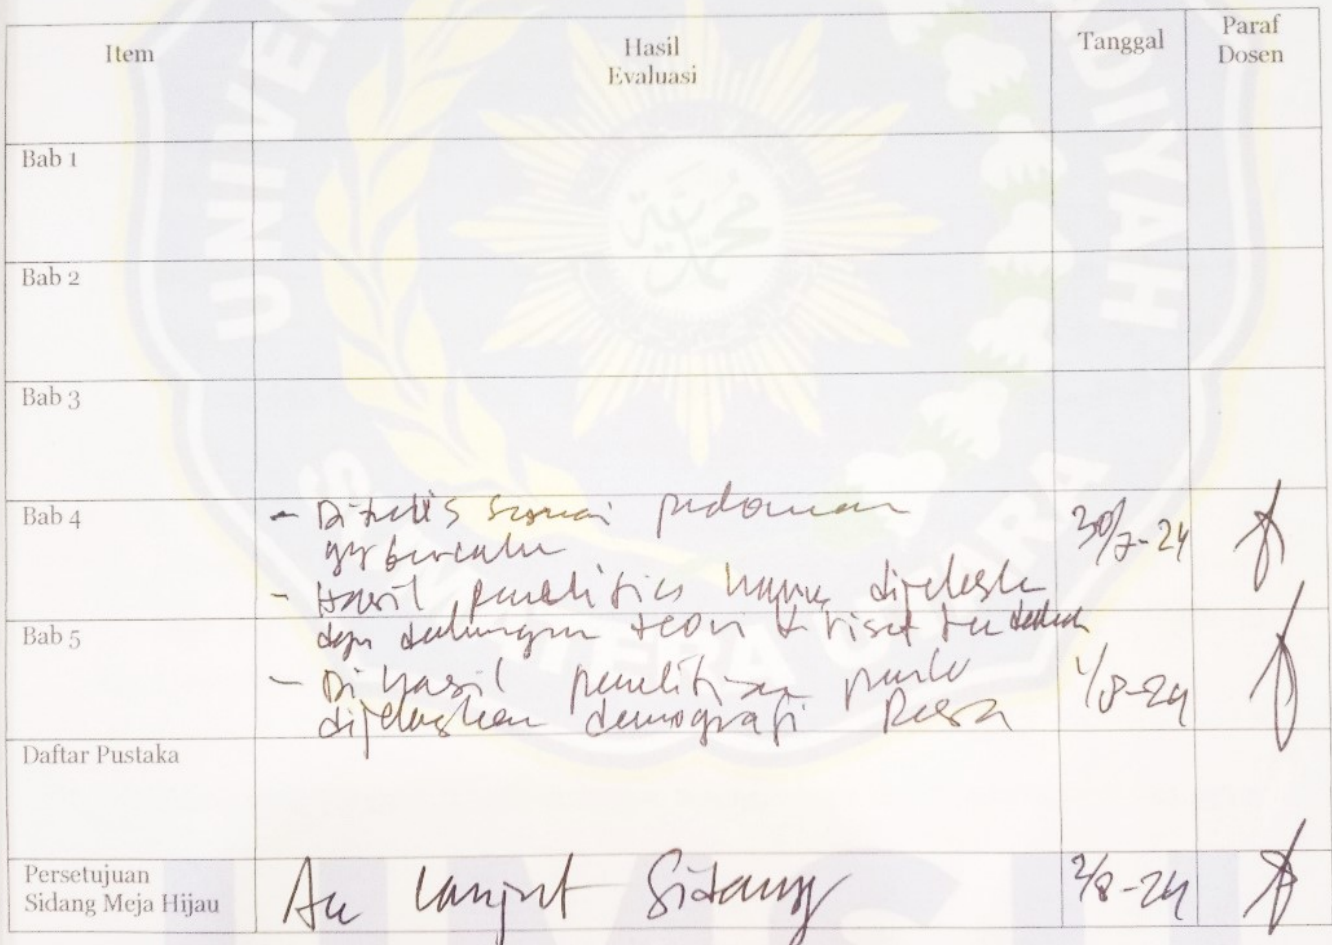 Item
Hasil
Evaluasi
Tanggal
Paraf
Dosen
Bab 1
Bab 2
Bab 3
Bab 4
- Ditulis sesuai pedoman
yg berlaku
30/7-24
- Hasil penelitian harus dijelaskan
Bab 5
dgn dukungan teori & riset terdahulu
- Di hasil penelitian perlu
dijelaskan demografi Desa
1/8-24
Daftar Pustaka
Persetujuan
Sidang Meja Hijau
Acc lanjut Sidang
2/8-24
UMSU